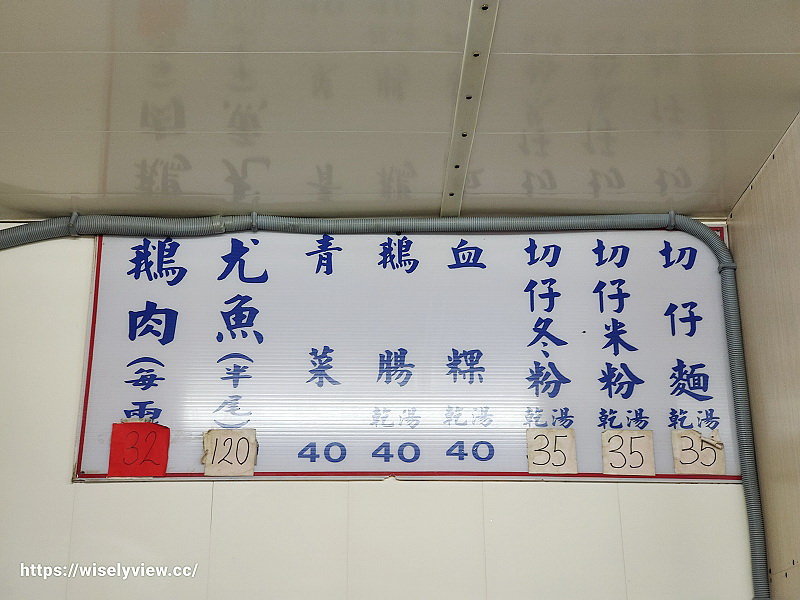 切仔麵 乾湯 35
切仔米粉 乾湯 35
切仔冬粉 乾湯 35
血粿 乾湯 40
鵝腸 乾湯 40
青菜 40
尤魚(半尾) 120
鵝肉(每 32
https://wiselyview.cc/